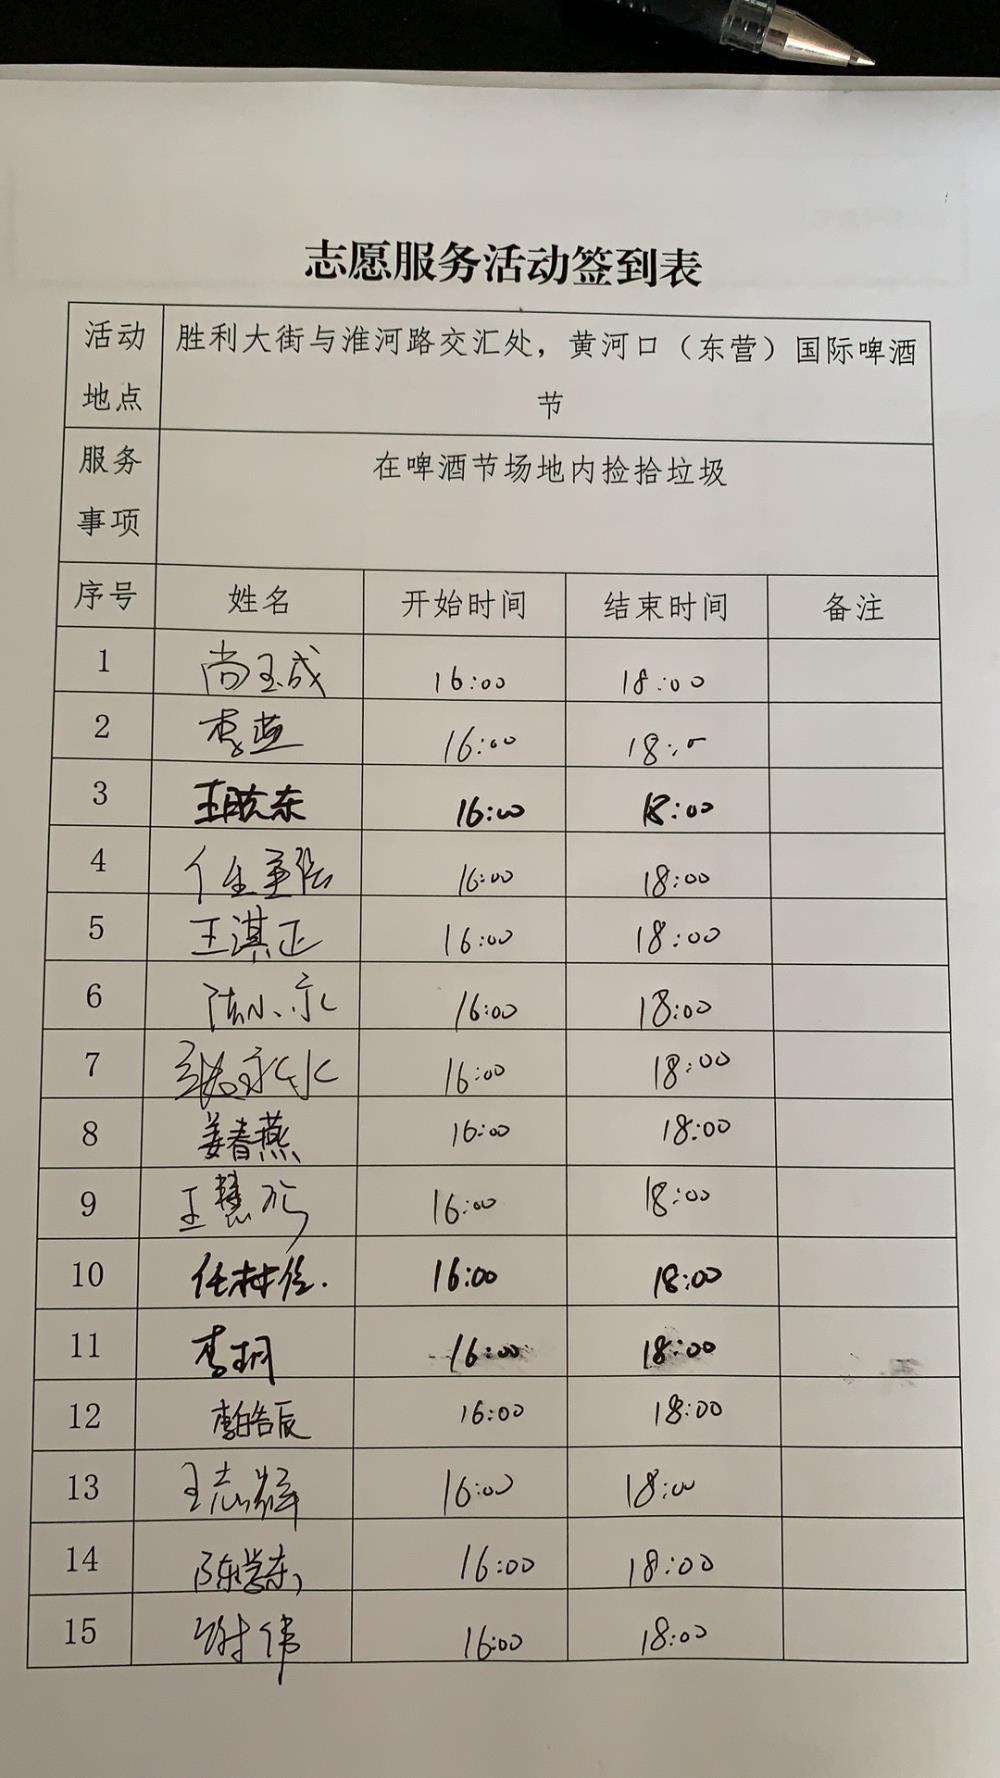 志愿服务活动签到表
活动地点
胜利大街与淮河路交汇处，黄河口（东营）国际啤酒
节
服务事项
在啤酒节场地内捡拾垃圾
序号 姓名 开始时间 结束时间 备注
1 尚玉成 16:00 18:00
2 李燕 16:00 18:00
3 16:00 18:00
4 16:00 18:00
5 王淇正 16:00 18:00
6 陈小永 16:00 18:00
7 16:00 18:00
8 姜春燕 16:00 18:00
9 16:00 18:00
10 16:00 18:00
11 李玥 16:00 18:00
12 李皓辰 16:00 18:00
13 王志辉 16:00 18:00
14 陈学东 16:00 18:00
15 谢伟 16:00 18:00